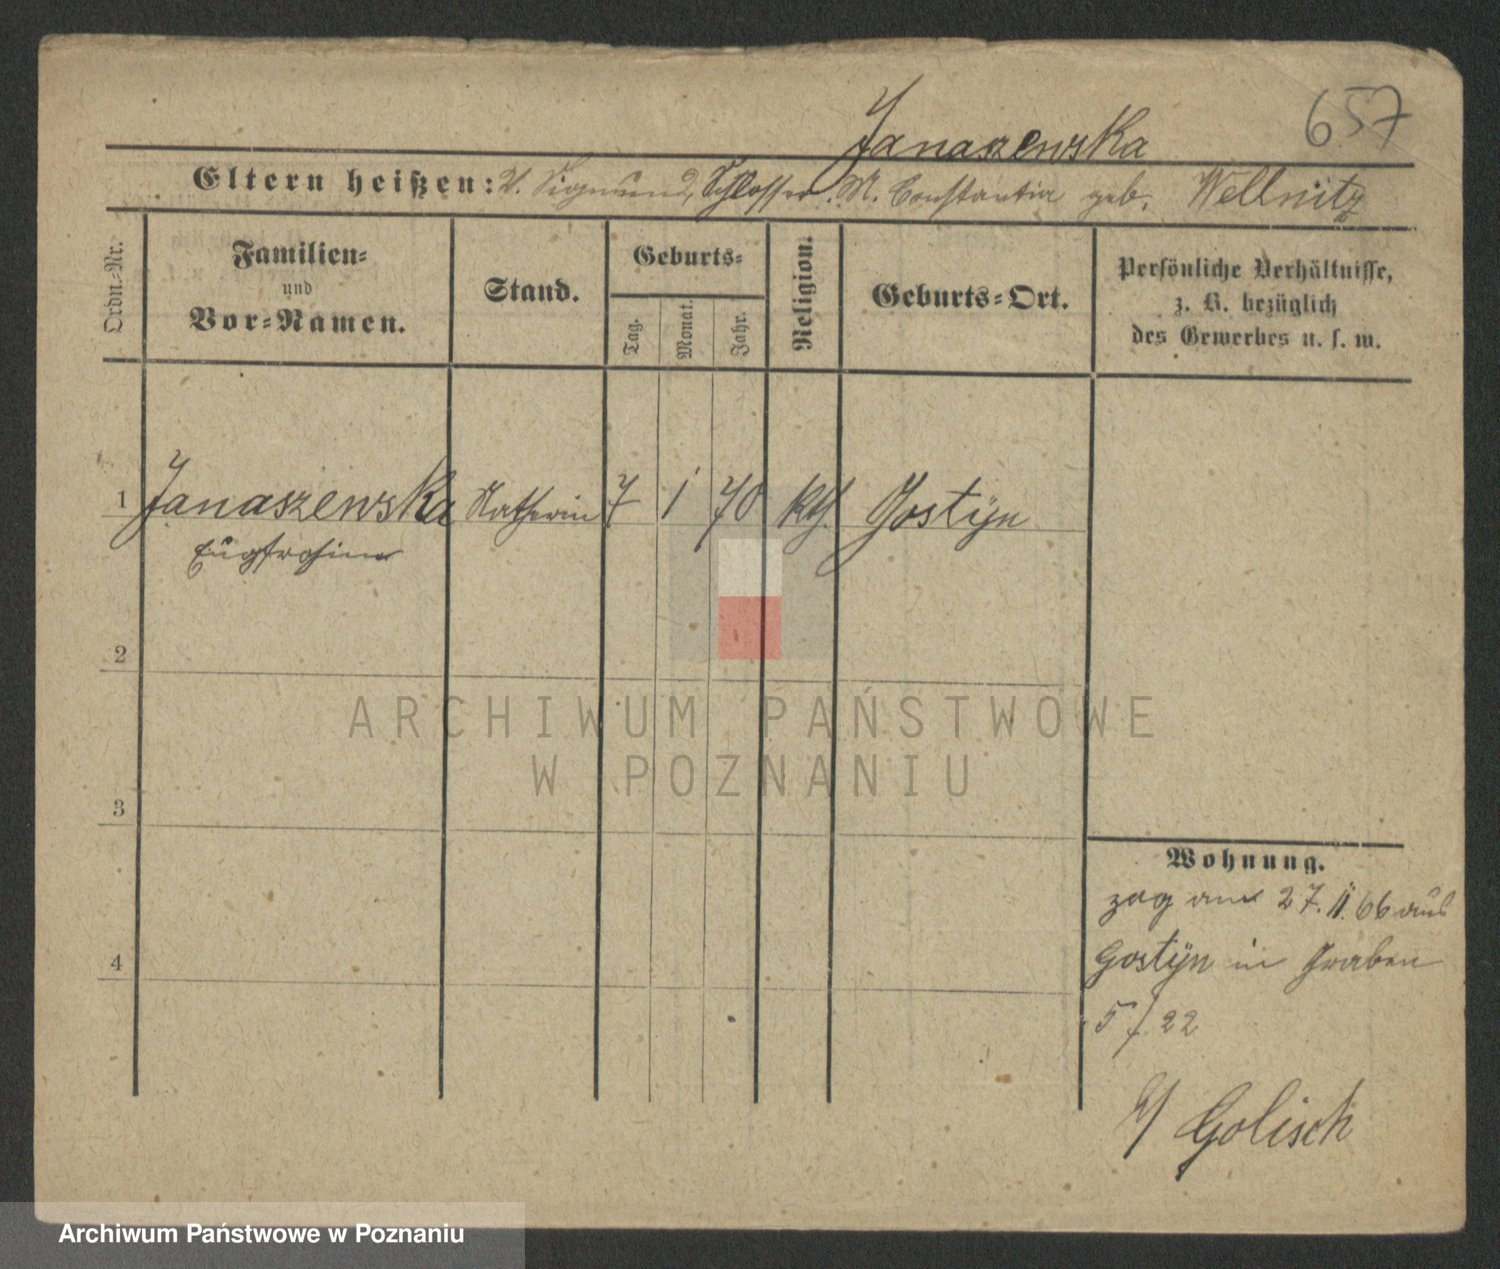 657
Janaszewska
Eltern heißen: V. Sigmund, Schlosser. M. Constantia geb. Wellnitz
Ordn.-Nr.
Familien-
und
Vor-Namen.
Stand.
Geburts-
Tag.
Monat.
Jahr.
Religion.
Geburts-Ort.
Persönliche Verhältnisse,
z. B. bezüglich
des Gewerbes u. s. w.
1 Janaszewska 7 1 70 kth. Gostÿn
2
3
4
Wohnung.
zog am 27. 11. 66 aus
Gostÿn in Graben
5 /. 22
b/ Golisch
ARCHIWUM PAŃSTWOWE
W POZNANIU
Archiwum Państwowe w Poznaniu